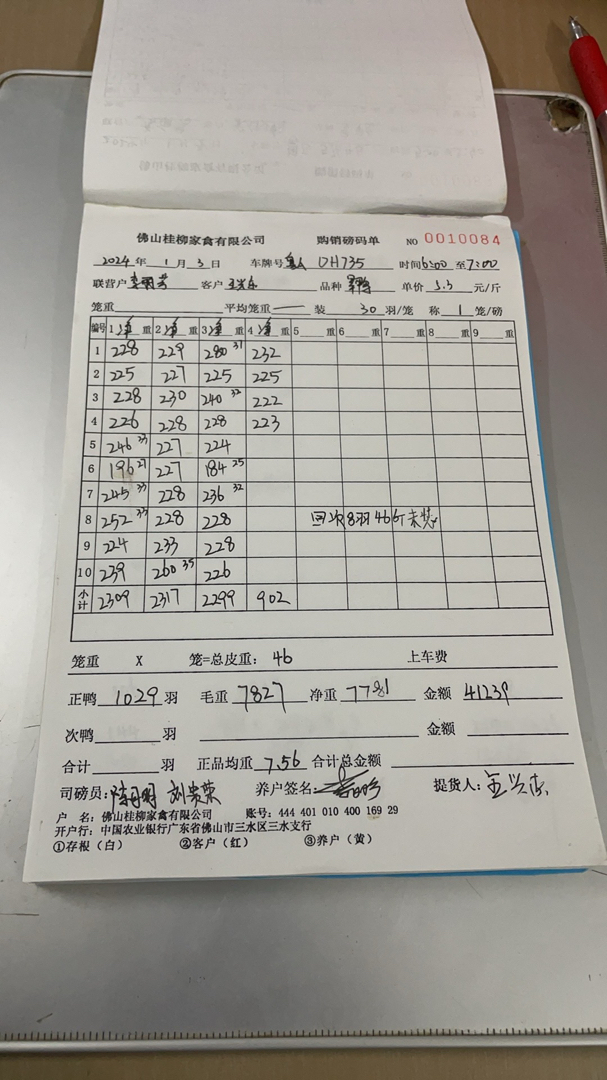 佛山桂柳家禽有限公司 购销磅码单 NO 0010084
2024 年 1 月 3 日 车牌号 DH735 时间 6:00 至 7:00
联营户 客户 品种 单价 5.3 元/斤
笼重 平均笼重 — 装 30 羽/笼 称 1 笼/磅
编号 1 净 重 2 净 重 3 净 重 4 净 重 5 重 6 重 7 重 8 重 9 重
1 228 229 280 37 232
2 225 227 225 225
3 228 230 240 32 222
4 226 228 228 223
5 246 33 227 224
6 196 27 227 184 25
7 245 33 228 236 32
8 252 33 228 228 回次8羽46斤未装
9 224 233 228
10 239 260 35 226
小计 2309 2317 2299 902
笼重 X 笼=总皮重: 46 上车费
正鸭 1029 羽 毛重 7827 净重 7781 金额 41239
次鸭 羽 金额
合计 羽 正品均重 7.56 合计总金额
司磅员: 刘贵荣 养户签名: 提货人:
户 名: 佛山桂柳家禽有限公司 账号: 444 401 010 400 169 29
开户行: 中国农业银行广东省佛山市三水区三水支行
①存根（白） ②客户（红） ③养户（黄）